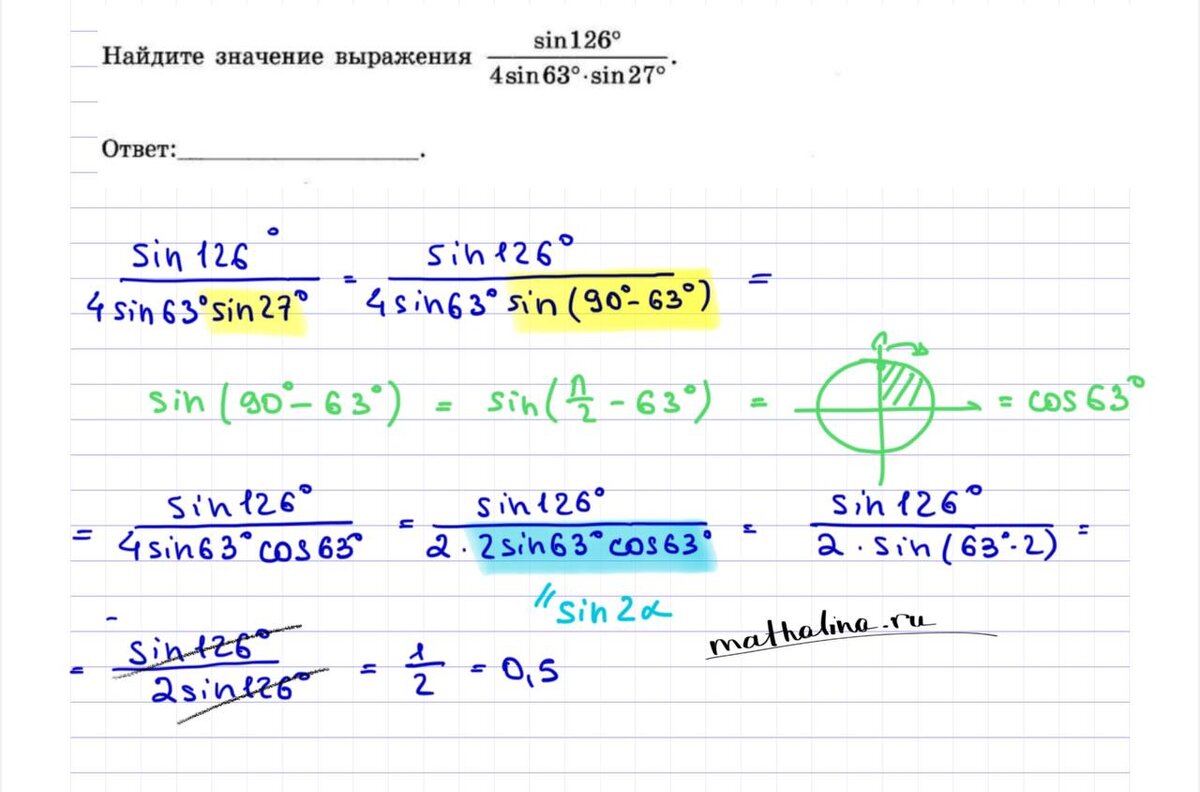 Найдите значение выражения sin126° / 4sin63°·sin27°.
Ответ:____________________.
sin126° / 4sin63°sin27° = sin126° / 4sin63°sin(90°-63°) =
sin(90°-63°) = sin(π/2 - 63°) = = cos63°
= sin126° / 4sin63°cos63° = sin126° / 2·2sin63°cos63° = sin126° / 2·sin(63°·2) =
"sin2α
mathalina.ru
= sin126° / 2sin126° = 1/2 = 0,5